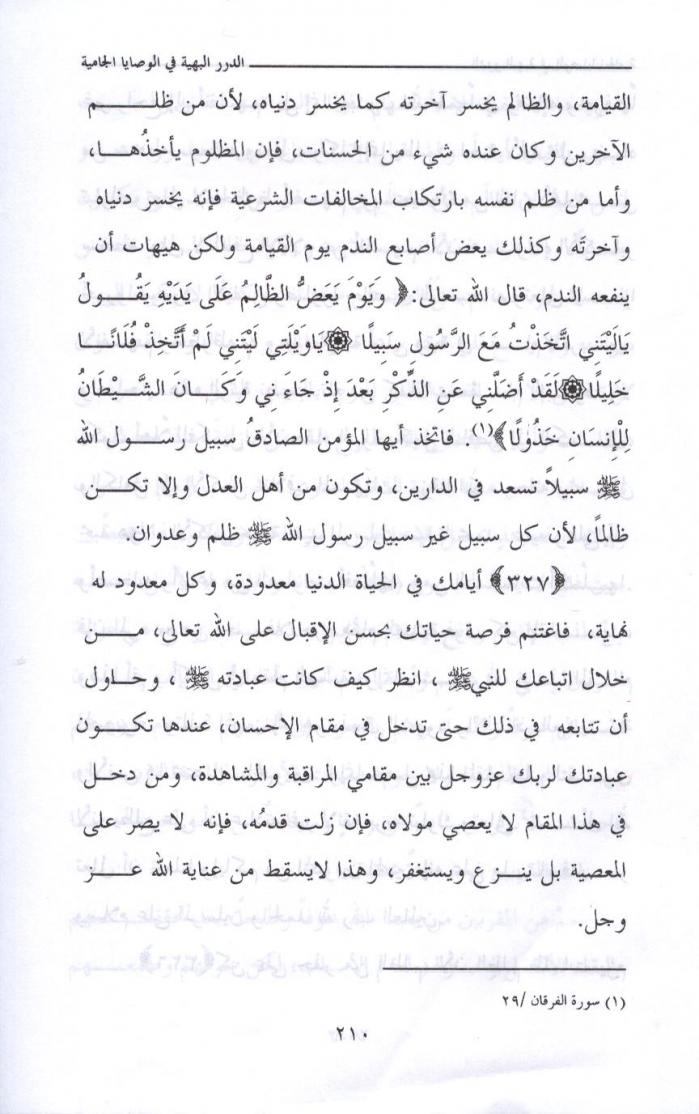 الدرر البهية في الوصايا الجامية
القيامة، والظالم يخسر آخرته كما يخسر دنياه، لأن من ظلـــــم
الآخرين وكان عنده شيء من الحسنات، فإن المظلوم يأخذُهـــا،
وأما من ظلم نفسه بارتكاب المخالفات الشرعية فإنه يخسر دنياه
وآخرتَه وكذلك يعض أصابع الندم يوم القيامة ولكن هيهات أن
ينفعه الندم، قال الله تعالى:﴿ وَيَوْمَ يَعَضُّ الظَّالِمُ عَلَى يَدَيْهِ يَقُـــولُ
يَالَيْتَنِي اتَّخَذْتُ مَعَ الرَّسُولِ سَبِيلًا ۞يَاوَيْلَتِي لَيْتَنِي لَمْ أَتَّخِذْ فُلَانًـــا
خَلِيلًا۞لَقَدْ أَضَلَّنِي عَنِ الذِّكْرِ بَعْدَ إِذْ جَاءَ نِي وَكَـــانَ الشَّـــيْطَانُ
لِلْإِنسَانِ خَذُولًا﴾(١). فاتخذ أيها المؤمن الصادقُ سبيل رســـول الله
ﷺ سبيلاً تسعد في الدارين، وتكون من أهل العدل وإلا تكـــن
ظالمًا، لأن كل سبيل غير سبيل رسول الله ﷺ ظلم وعدوان.
﴿٣٢٧﴾ أيامك في الحياة الدنيا معدودة، وكل معدود له
نهاية، فاغتنم فرصة حياتك بحسن الإقبال على الله تعالى، مـــن
خلال اتباعك للنبيﷺ ، انظر كيف كانت عبادته ﷺ ، وحـــاول
أن تتابعه في ذلك حتى تدخل في مقام الإحسان، عندها تكـــون
عبادتك لربك عزوجل بين مقامي المراقبة والمشاهدة، ومن دخـــل
في هذا المقام لا يعصي مولاه، فإن زلت قدمُه، فإنه لا يصر على
المعصية بل ينـــزع ويستغفر، وهذا لايسقط من عناية الله عـــز
وجل.
(١) سورة الفرقان /٢٩
٢١٠